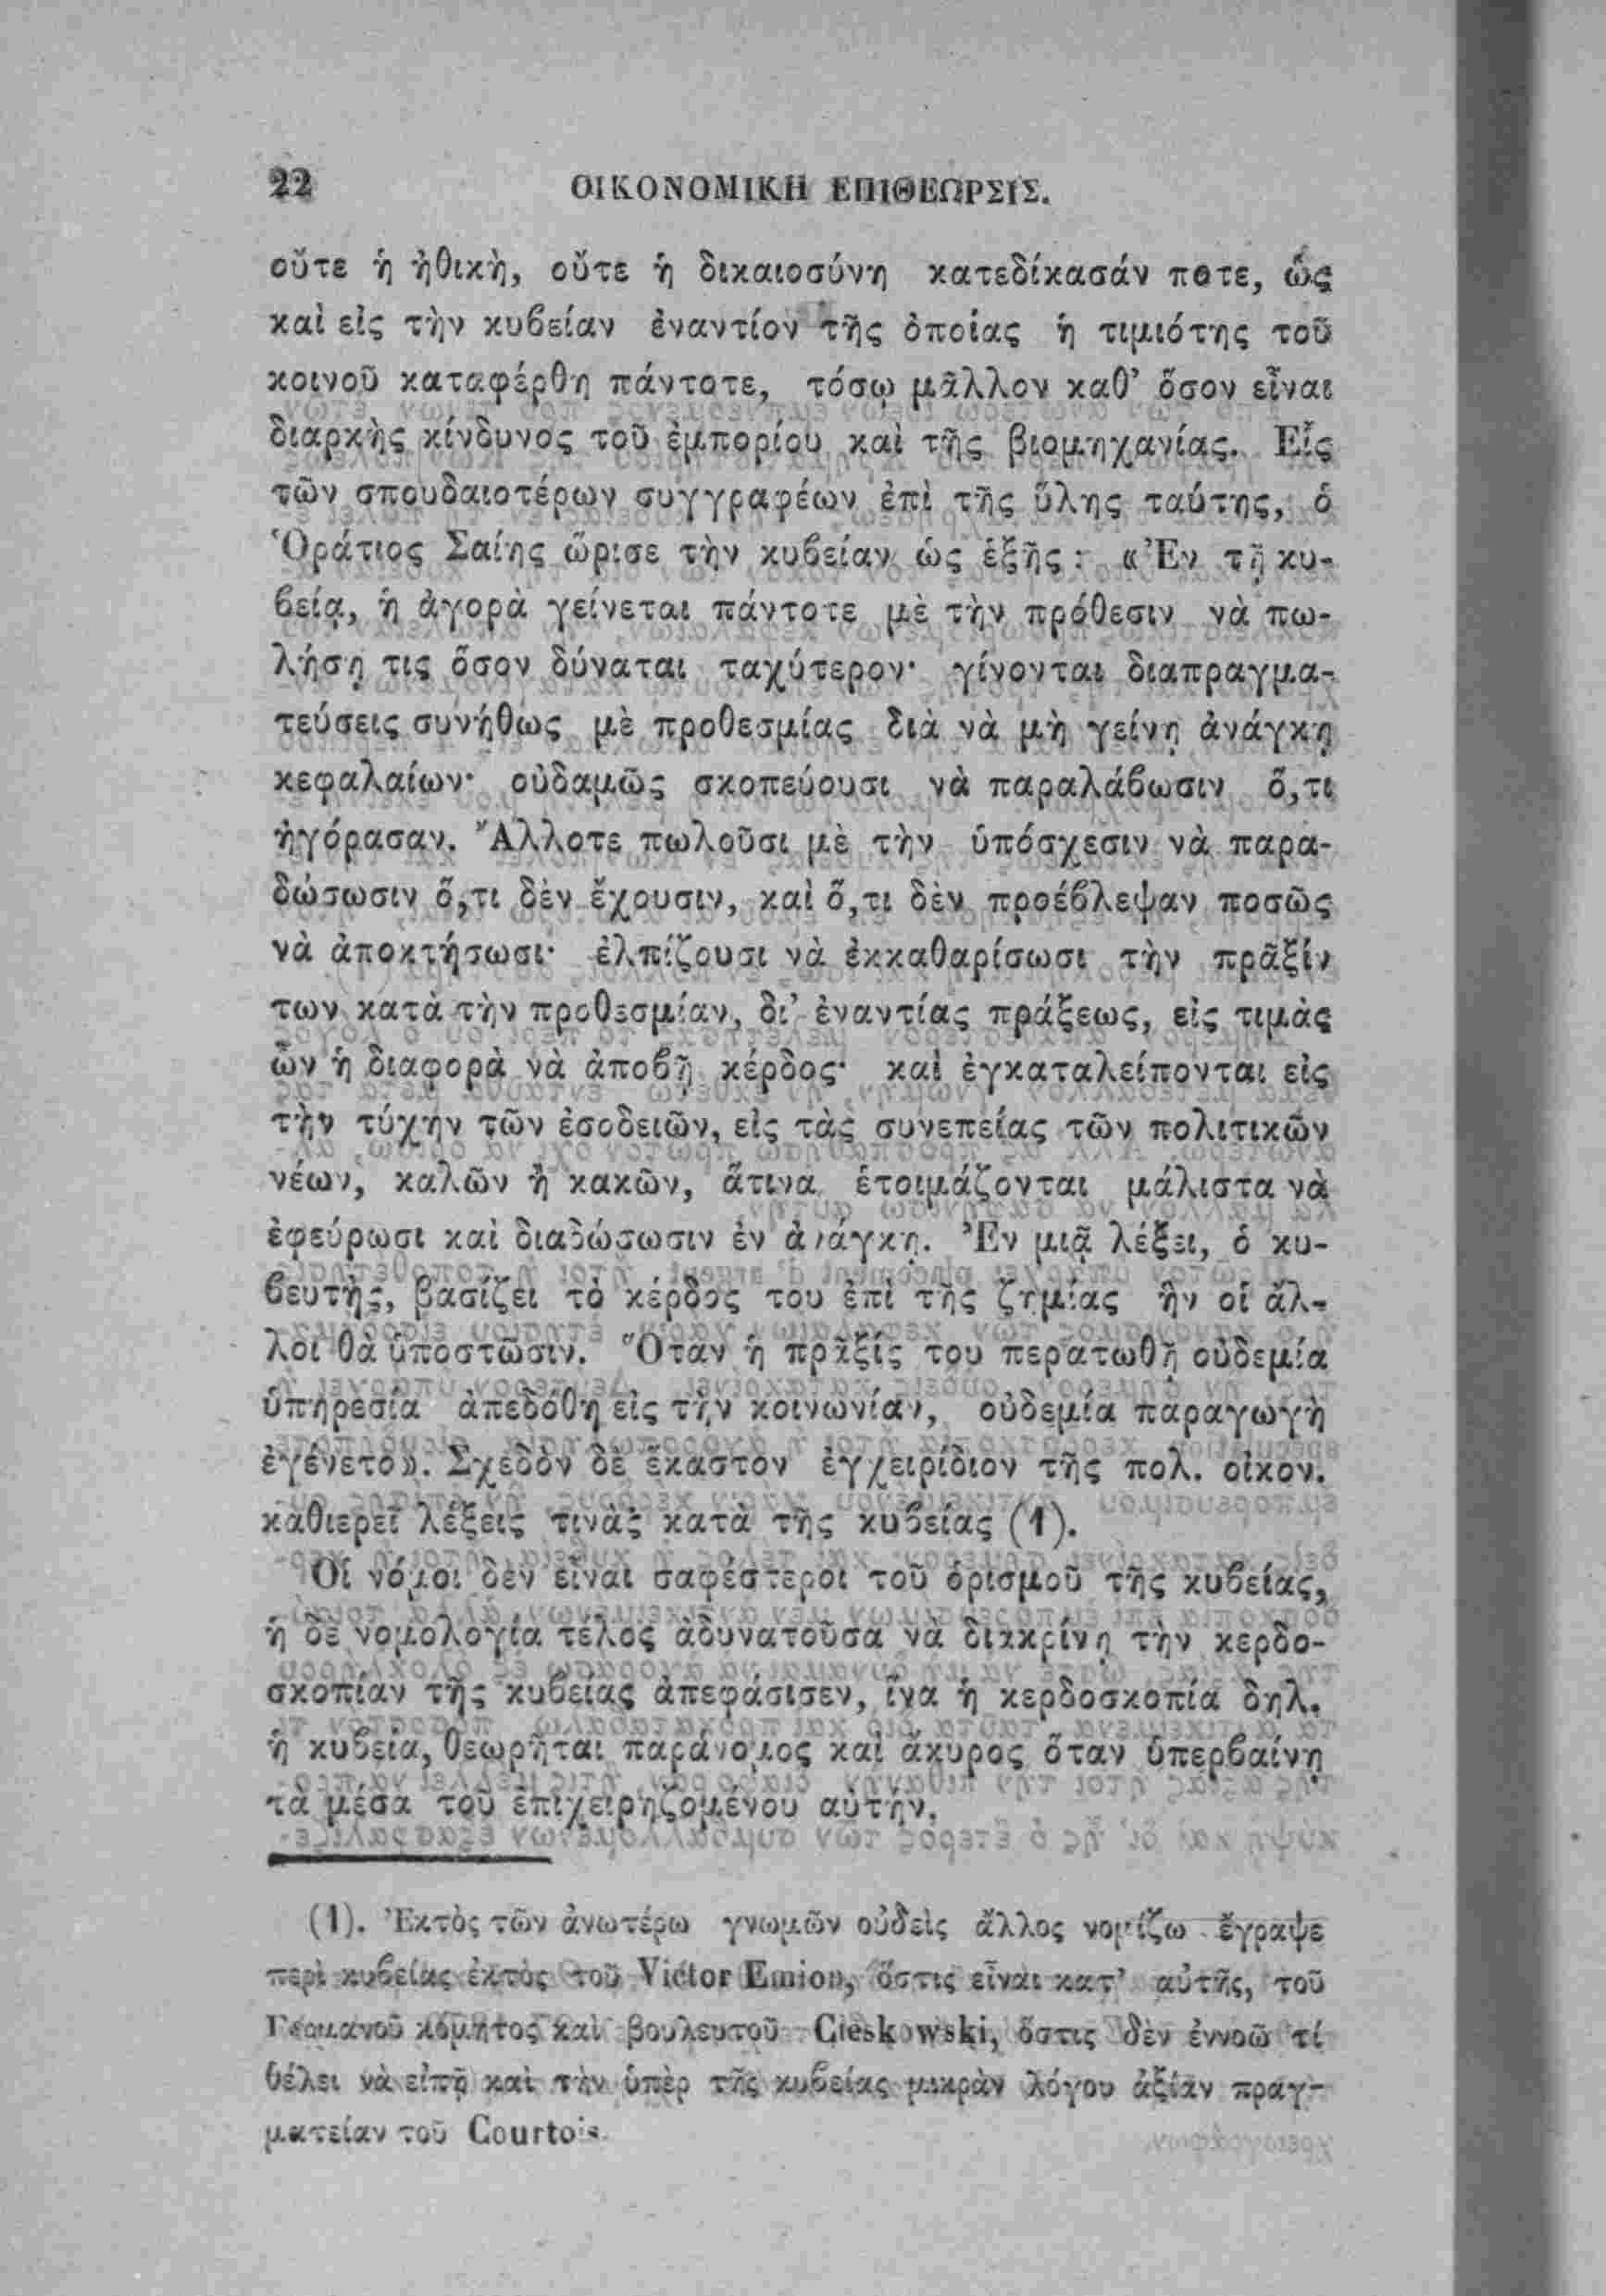 22 ΟΙΚΟΝΟΜΙΚΗ ΕΠΙΘΕΩΡΣΙΣ.
οὔτε ἡ ἠθικὴ, οὔτε ἡ δικαιοσύνη κατεδίκασάν ποτε, ὡς
καὶ εἰς τὴν κυβείαν ἐναντίον τῆς ὁποίας ἡ τιμιότης τοῦ
κοινοῦ καταφέρθη πάντοτε, τόσῳ μᾶλλον καθ’ ὅσον εἶναι
διαρκὴς κίνδυνος τοῦ ἐμπορίου καὶ τῆς βιομηχανίας. Εἷς
τῶν σπουδαιοτέρων συγγραφέων ἐπὶ τῆς ὕλης ταύτης, ὁ
Ὁράτιος Σαίης ὥρισε τὴν κυβείαν ὡς ἑξῆς : «Ἐν τῇ κυ-
βείᾳ, ἡ ἀγορὰ γείνεται πάντοτε μὲ τὴν πρόθεσιν νὰ πω-
λήσῃ τις ὅσον δύναται ταχύτερον· γίνονται διαπραγμα-
τεύσεις συνήθως μὲ προθεσμίας διὰ νὰ μὴ γείνῃ ἀνάγκη
κεφαλαίων· οὐδαμῶς σκοπεύουσι νὰ παραλάβωσιν ὅ,τι
ἠγόρασαν. Ἄλλοτε πωλοῦσι μὲ τὴν ὑπόσχεσιν νὰ παρα-
δώσωσιν ὅ,τι δὲν ἔχουσιν, καὶ ὅ,τι δὲν προέβλεψαν ποσῶς
νὰ ἀποκτήσωσι· ἐλπίζουσι νὰ ἐκκαθαρίσωσι τὴν πρᾶξίν
των κατὰ τὴν προθεσμίαν, δι’ ἐναντίας πράξεως, εἰς τιμὰς
ὧν ἡ διαφορὰ νὰ ἀποβῇ κέρδος· καὶ ἐγκαταλείπονται εἰς
τὴν τύχην τῶν ἐσοδειῶν, εἰς τὰς συνεπείας τῶν πολιτικῶν
νέων, καλῶν ἢ κακῶν, ἅτινα ἑτοιμάζονται μάλιστα νὰ
ἐφεύρωσι καὶ διαδώσωσιν ἐν ἀνάγκῃ. Ἐν μιᾷ λέξει, ὁ κυ-
βευτὴς, βασίζει τὸ κέρδος του ἐπὶ τῆς ζημίας ἣν οἱ ἄλ-
λοι θὰ ὑποστῶσιν. Ὅταν ἡ πρᾶξίς του περατωθῇ οὐδεμία
ὑπηρεσία ἀπεδόθη εἰς τὴν κοινωνίαν, οὐδεμία παραγωγὴ
ἐγένετο». Σχεδὸν δὲ ἕκαστον ἐγχειρίδιον τῆς πολ. οἰκον.
καθιεροῖ λέξεις τινὰς κατὰ τῆς κυβείας (1).
Οἱ νόμοι δὲν εἶναι σαφέστεροι τοῦ ὁρισμοῦ τῆς κυβείας,
ἡ δὲ νομολογία τέλος ἀδυνατοῦσα νὰ διακρίνῃ τὴν κερδο-
σκοπίαν τῆς κυβείας ἀπεφάσισεν, ἵνα ἡ κερδοσκοπία δηλ.
ἡ κυβεία, θεωρῆται παράνομος καὶ ἄκυρος ὅταν ὑπερβαίνῃ
τὰ μέσα τοῦ ἐπιχειρηζομένου αὐτήν.
(1). Ἐκτὸς τῶν ἀνωτέρω γνωμῶν οὐδεὶς ἄλλος νομίζω ἔγραψε
περὶ κυβείας ἐκτὸς τοῦ Victor Emion, ὅστις εἶναι κατ’ αὐτῆς, τοῦ
Γερμανοῦ κόμητος καὶ βουλευτοῦ Cieskowski, ὅστις δὲν ἐννοῶ τί
θέλει νὰ εἰπῇ καὶ τὴν ὑπὲρ τῆς κυβείας μικρὰν λόγου ἀξίαν πραγ-
ματείαν τοῦ Courtois.